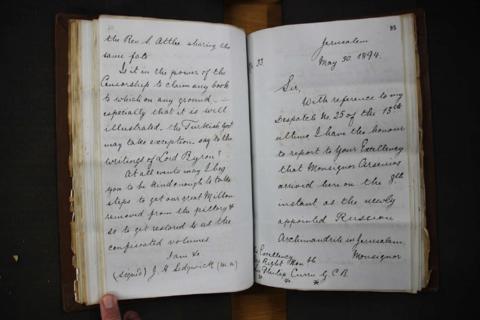 the Rev. S. Attlee sharing the
same fate
Is it in the power of the
Censorship to claim any book
to which on any ground —
especially that it is well
illustrated — the Turkish Govt
may take exception say to the
writings of Lord Byron?
At all events may I beg
you to be kind enough to take
steps to get our great Milton
removed from the pillory &
so to get restored to us the
confiscated volumes.
I am &c
(signed) J. H. Sedgwick (M.A)
85
33
Jerusalem
May 30 1894.
Sir,
With reference to my
Despatch No. 25 of the 13th
ultimo I have the honour
to report to Your Excellency
that Monsignor Arsenios
arrived here on the 8th
instant as the newly
appointed Russian
Archimandrite in Jerusalem.
Monsignor
Excellency
Right Honble
Currie G.C.B.